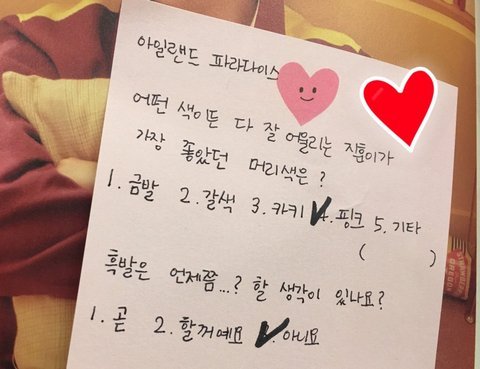 아일랜드 파라다이스
어떤 색이든 다 잘 어울리는 지훈이가
가장 좋았던 머리색은?
1. 금발 2. 갈색 3. 카키 4. 핑크 5. 기타
( )
흑발은 언제쯤...? 할 생각이 있나요?
1. 곧 2. 할꺼예요 아니요